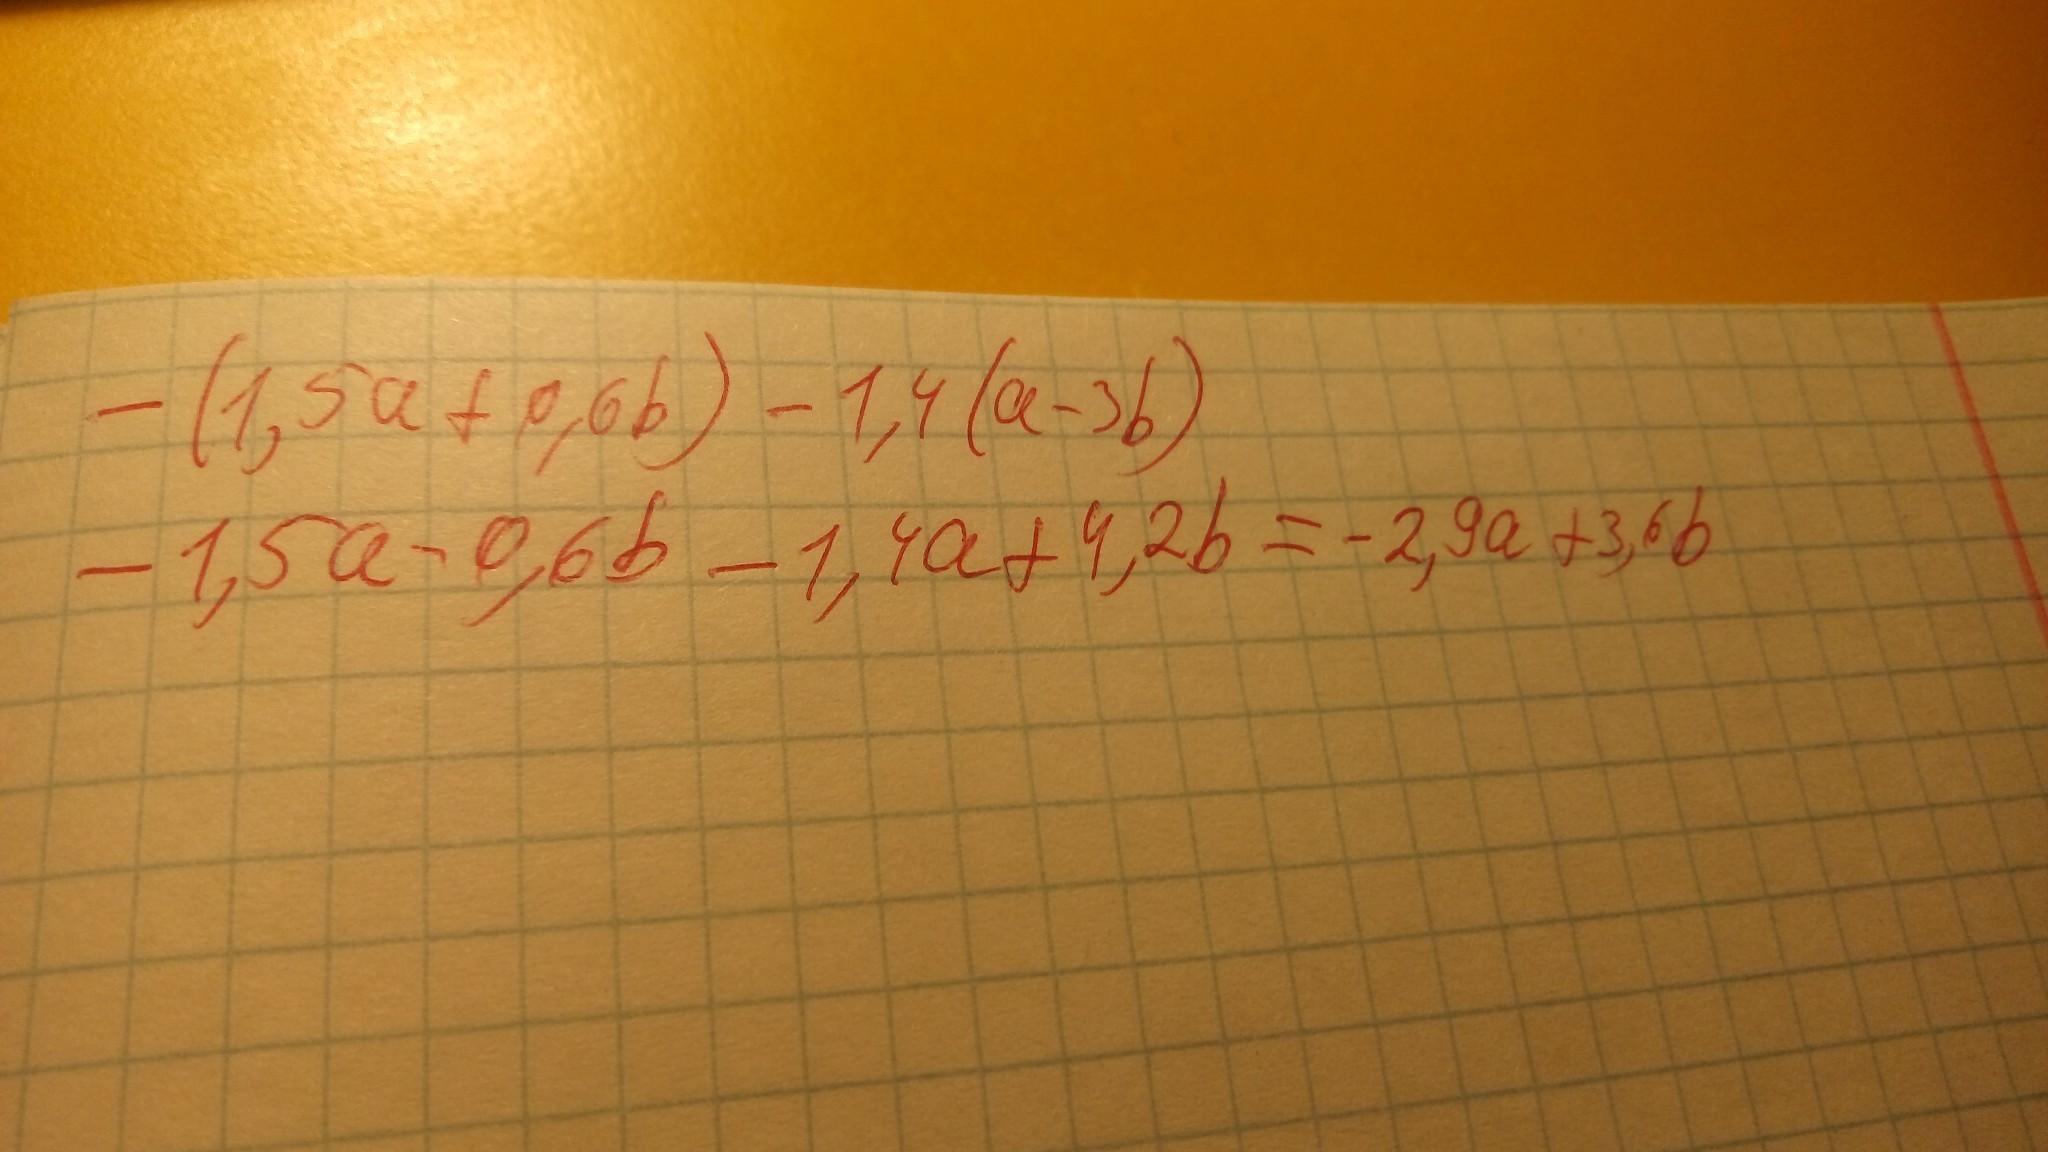 -(1,5a+0,6b)-1,4(a-3b)
-1,5a-0,6b-1,4a+4,2b=-2,9a+3,6b